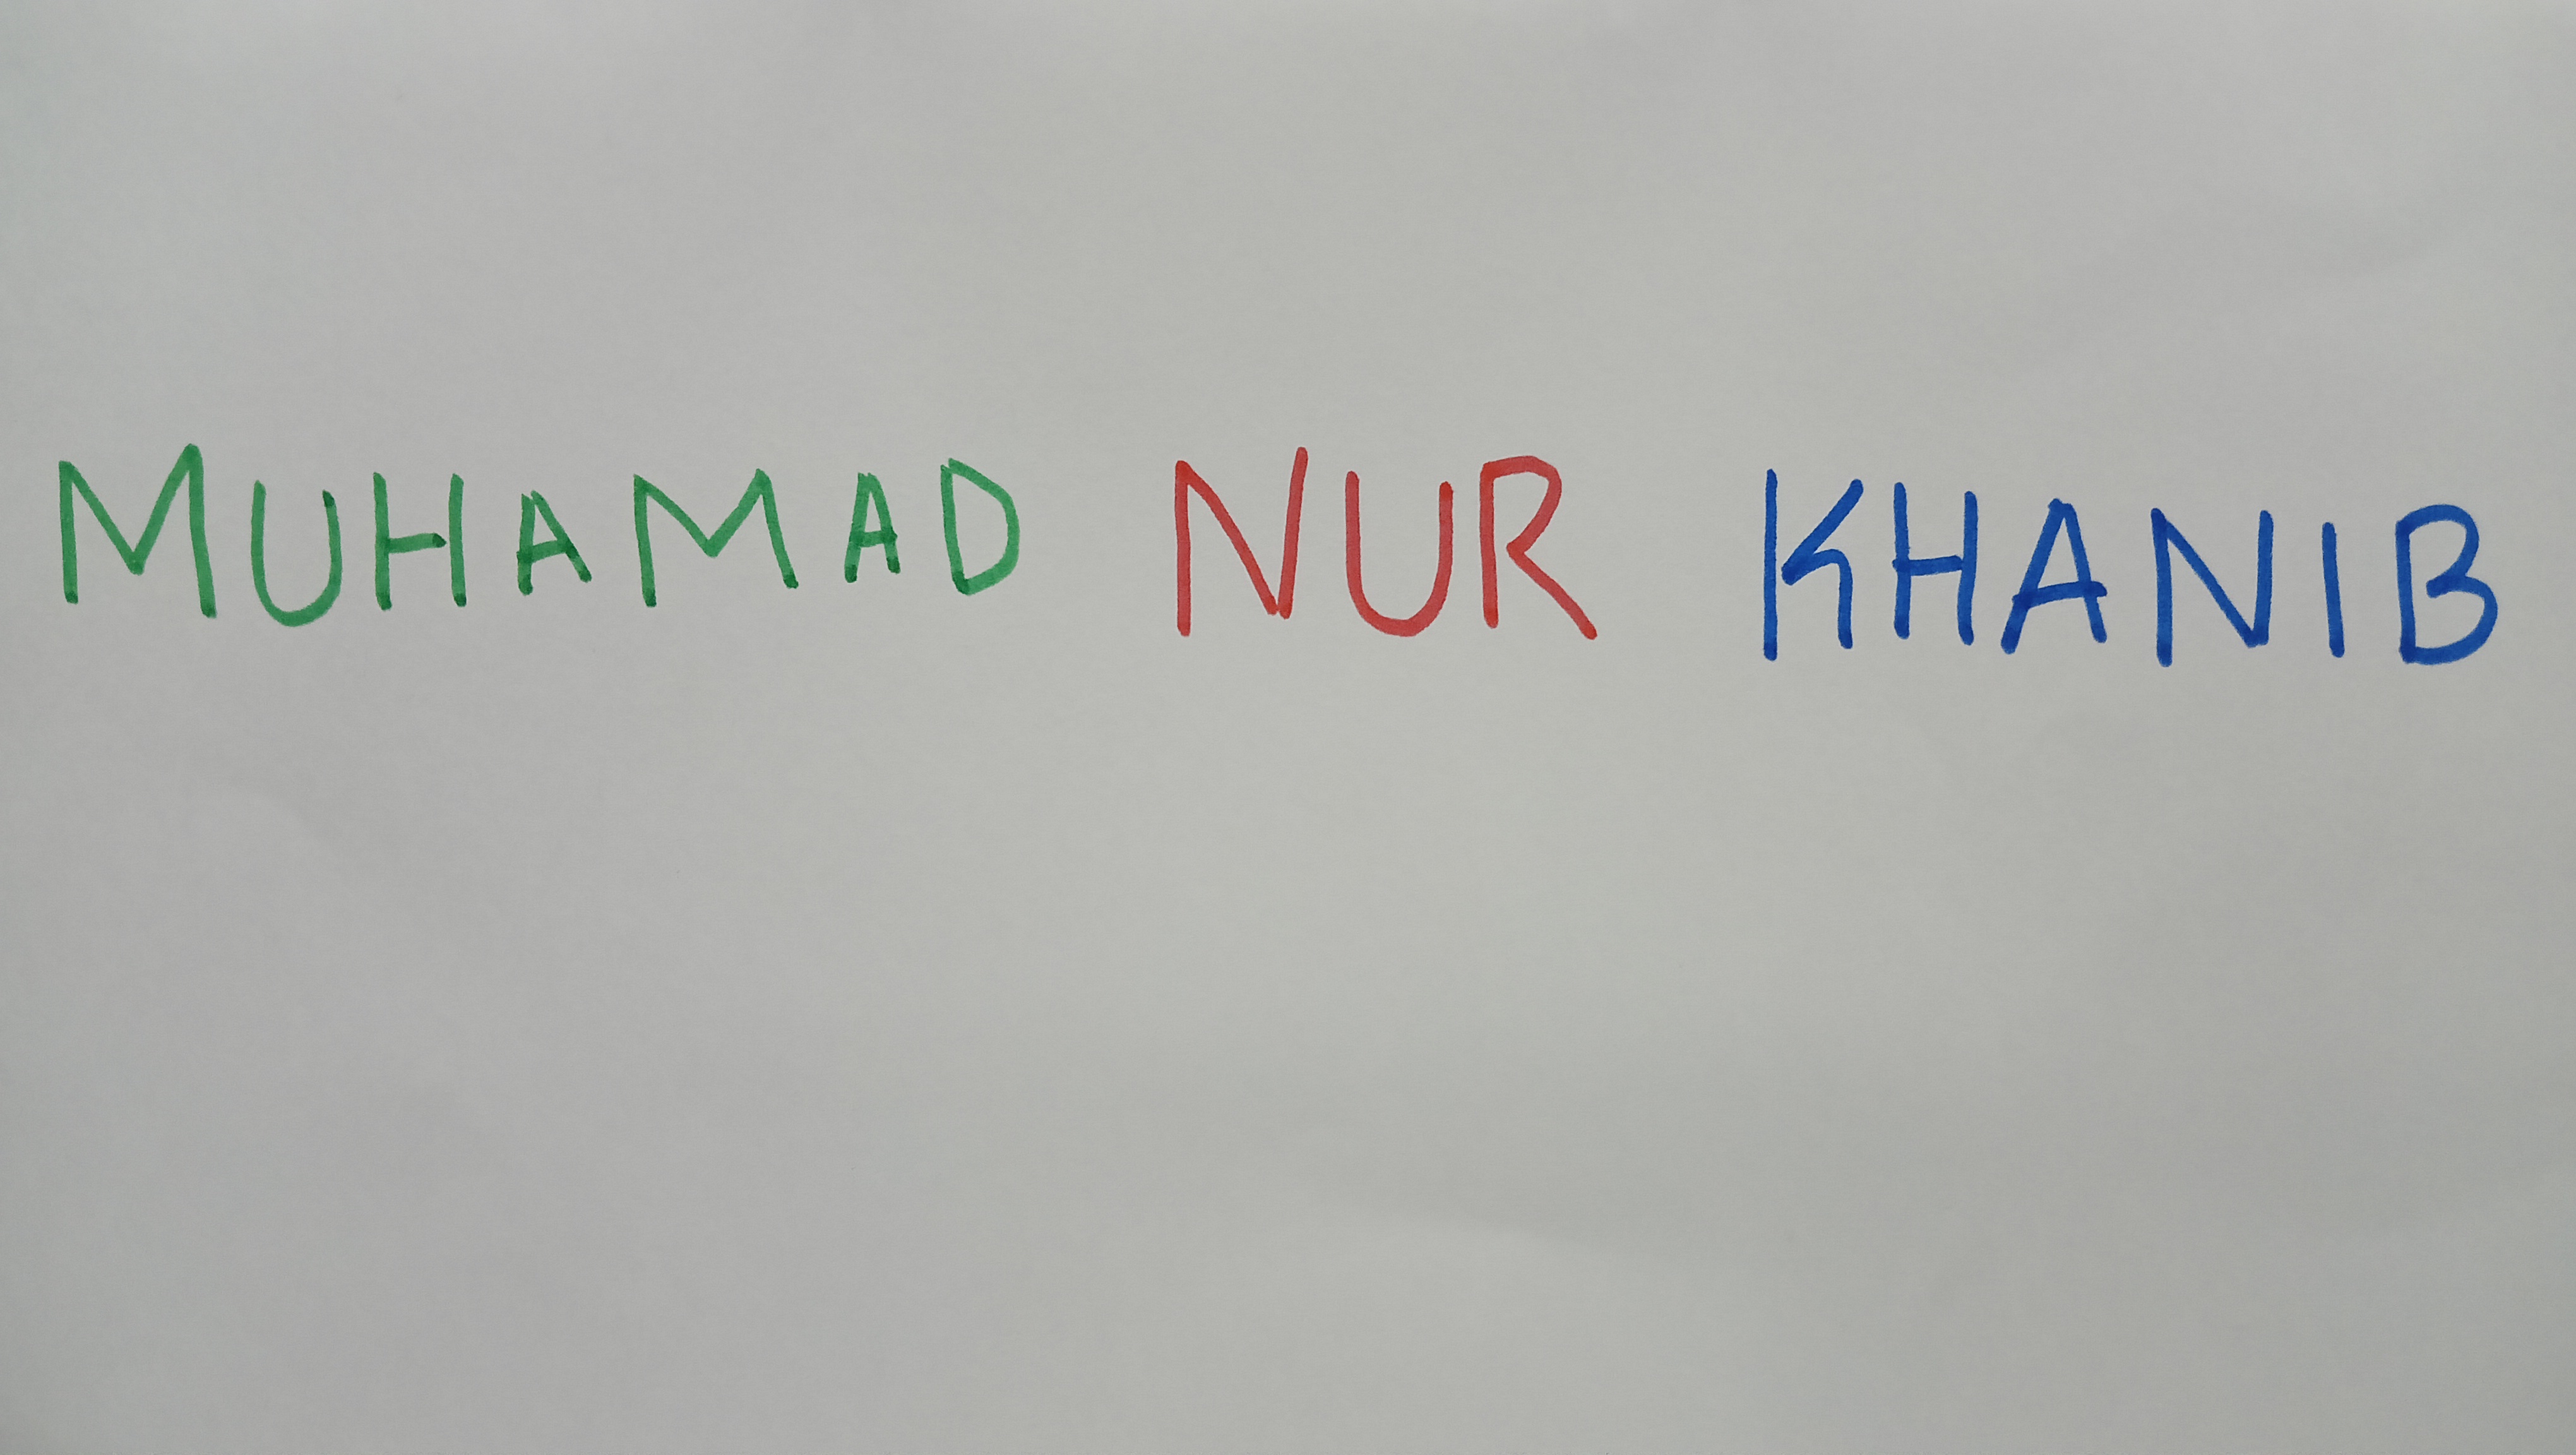 MUHAMAD NUR KHANIB